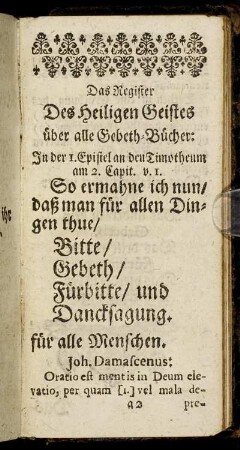 Das Register
Des Heiligen Geistes
über alle Gebeth-Bücher:
In der 1. Epistel an den Timotheum
am 2. Capit. v. 1.
So ermahne ich nun/
daß man für allen Din-
gen thue/
Bitte/
Gebeth/
Fürbitte/ und
Dancksagung.
für alle Menschen.
Joh. Damascenus:
Oratio est mentis in Deum ele-
vatio, per quam [1.] vel mala de-
a2 pre-